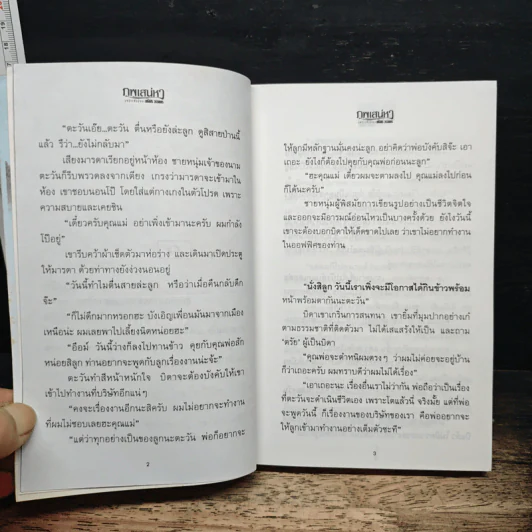 ภพเสน่หา
"ตะวันเอ้ย...ตะวัน ตื่นหรือยังล่ะลูก ดูสิสายป่านนี้
แล้ว รีว่า...ยังไม่กลับมา"
เสียงมารดาเรียกอยู่หน้าห้อง ชายหนุ่มเจ้าของนาม
ตะวันก็รีบพรวดลงจากเตียง เกรงว่ามารดาจะเข้ามาใน
ห้อง เขาชอบนอนโป๊ โดยใส่แต่กางเกงในตัวโปรด เพราะ
ความสบายและเคยชิน
"เดี๋ยวครับคุณแม่ อย่าเพิ่งเข้ามานะครับ ผมกำลัง
โป๊อยู่"
เขารีบคว้าผ้าเช็ดตัวมาห่อร่าง และเดินมาเปิดประตู
ให้มารดา ด้วยท่าทางยังง่วงนอนอยู่
"วันนี้ทำไมตื่นสายล่ะลูก หรือว่าเมื่อคืนกลับดึก
จ๊ะ"
"ก็ไม่ดึกมากหรอกฮะ บังเอิญเพื่อนมันมาจากเมือง
เหนือน่ะ ผมเลยพาไปเลี้ยงนิดหน่อยฮะ"
"อือม์ วันนี้ว่างก็ลงไปทานข้าว คุยกับคุณพ่อสัก
หน่อยสิลูก ท่านอยากจะพูดกับลูกเรื่องงานน่ะจ้ะ"
ตะวันทำสีหน้าหนักใจ บิดาจะต้องบังคับให้เขา
เข้าไปทำงานที่บริษัทอีกแน่ๆ
"คงจะเรื่องงานอีกนะสิครับ ผมไม่อยากจะทำงาน
ที่ผมไม่ชอบเลยฮะคุณแม่"
"แต่ว่าทุกอย่างเป็นของลูกนะตะวัน พ่อก็อยากจะ
2
ภพเสน่หา
ให้ลูกมีหลักฐานมั่นคงน่ะลูก อย่าคิดว่าพ่อบังคับสิจ๊ะ เอา
เถอะ ยังไงก็ต้องไปคุยกับคุณพ่อก่อนนะลูก"
"ฮะคุณแม่ เดี๋ยวผมจะตามลงไป คุณแม่ลงไปก่อน
ก็ได้นะครับ"
ชายหนุ่มผู้พิสมัยการเขียนรูปอย่างเป็นชีวิตจิตใจ
และออกจะมีอารมณ์อ่อนไหวเป็นบางครั้งด้วย ยังไงวันนี้
เขาจะต้องบอกบิดาให้เด็ดขาดไปเลย ว่าเขาไม่อยากทำงาน
ในออฟฟิศของท่าน
"นั่งสิลูก วันนี้เราเพิ่งจะมีโอกาสได้กินข้าวพร้อม
หน้าพร้อมตากันนะตะวัน"
บิดาเขาเกริ่นการสนทนา เขายิ้มที่มุมปากอย่างเก๋
ตามธรรมชาติที่ติดตัวมา ไม่ได้เสแสร้งให้เป็น และถาม
ผู้เป็นบิดา
"คุณพ่อจะตำหนิผมตรงๆ ว่าผมไม่ค่อยจะอยู่บ้าน
ก็ว่าเถอะครับ ผมทราบดีว่าผมไม่ได้เรื่อง"
"เอาเถอะนะ เรื่องอื่นเราไม่ว่ากัน พ่อถือว่าเป็นเรื่อง
ที่ตะวันจะดำเนินชีวิตเอง เพราะโตแล้วนี่ จริงมั้ย แต่ที่พ่อ
จะพูดวันนี้ ก็เรื่องงานของบริษัทของเรา คือพ่ออยากจะ
ให้ลูกเข้ามาทำงานอย่างเต็มตัวซะที"
3